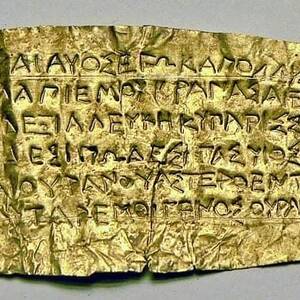 ΑΙΑΥΟΣΕΓΩΚΑΠΟΛΛ
ΛΑΠΙΕΜΟΥΚΡΑΝΑΣΑΙ
ΔΕΞΙΑΛΕΥΚΗΚΥΠΑΡΙΣ
ΔΕΣΙΠΩΔΕΣΙΓΑΣΥΙΟΣ
ΑΙΟΥΡΑΝΟΥΑΣΤΕΡΟΕΝΤ
ΥΤΑΡΕΜΟΙΓΕΝΟΣΟΥΡΑ